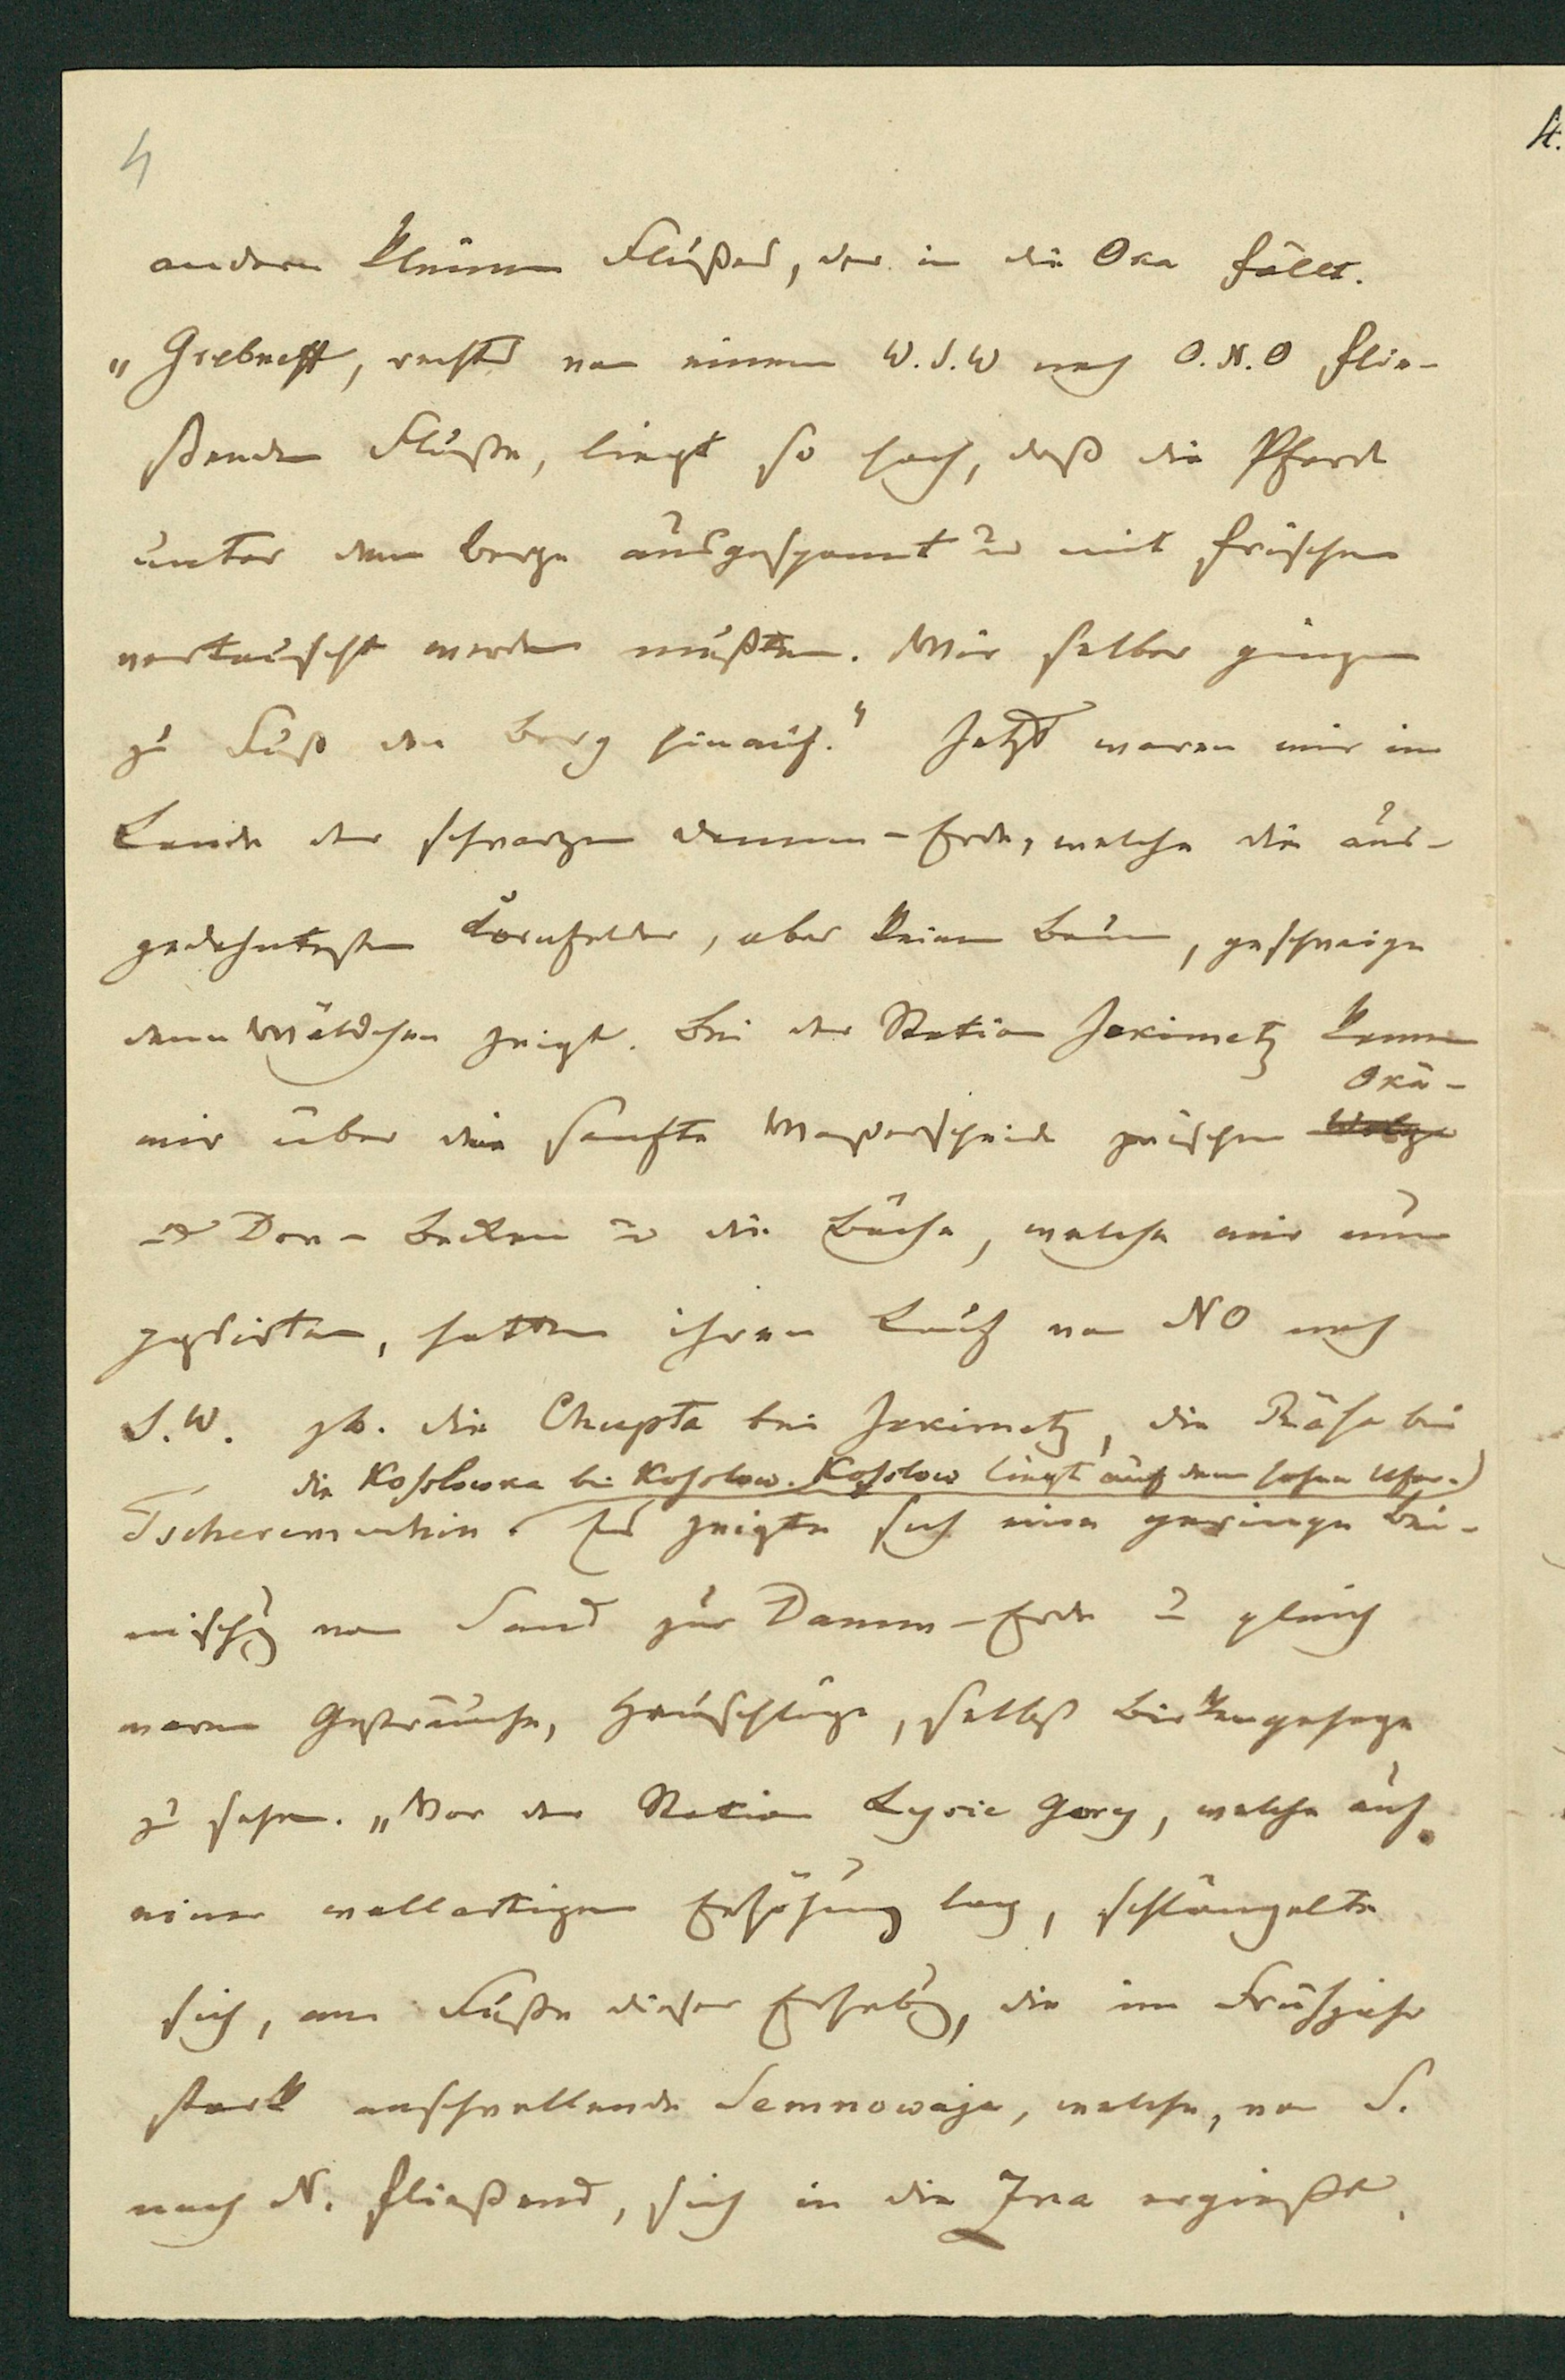 4
andern kleinen Flußes, der in die Oka fällt.
„Grebneff, rechts von einem W.S.W nach O.N.O flie-
ßenden Fluße, liegt so hoch, daß die Pferde
unter dem Berge ausgespannt u mit frischen
vertauscht werden mußten. Wir selber gingen
zu Fuß den Berg hinauf." Jetzt waren wir im
Lande der schwarzen Damm-Erde, welche die aus-
gedehntesten Kornfelder, aber keinen Baum, geschweige
denn Wäldchen zeigt. Bei der Station Jekimetz kamen
Oka-
wir über die sanfte Waßerscheide zwischen Wolga
u Don-Becken u die Bäche, welche wir nun
paßirten, hatten ihren Lauf von NO nach
S.W. zb. die Chupta bei Jekimetz, die Räsa bei
die Koslowka bei Koslow. Koslow liegt auf dem hohen Ufer.)
Tscheremuchin. Es zeigte sich eine geringe Bei-
misch̄g von Sand zur Damm-Erde u gleich
waren Gesträuche, Heuschläge, selbst Birkengehege
zu sehen. „Vor der Station Lysie Gory, welche auf
einer wallartigen Erhöhung lag, schlängelte
sich, am Fuße dieser Erhebg, die im Frühjahr
stark anschwellende Semnowaja, welche, von S.
nach N. fließend, sich in die Zna ergießt.
4.